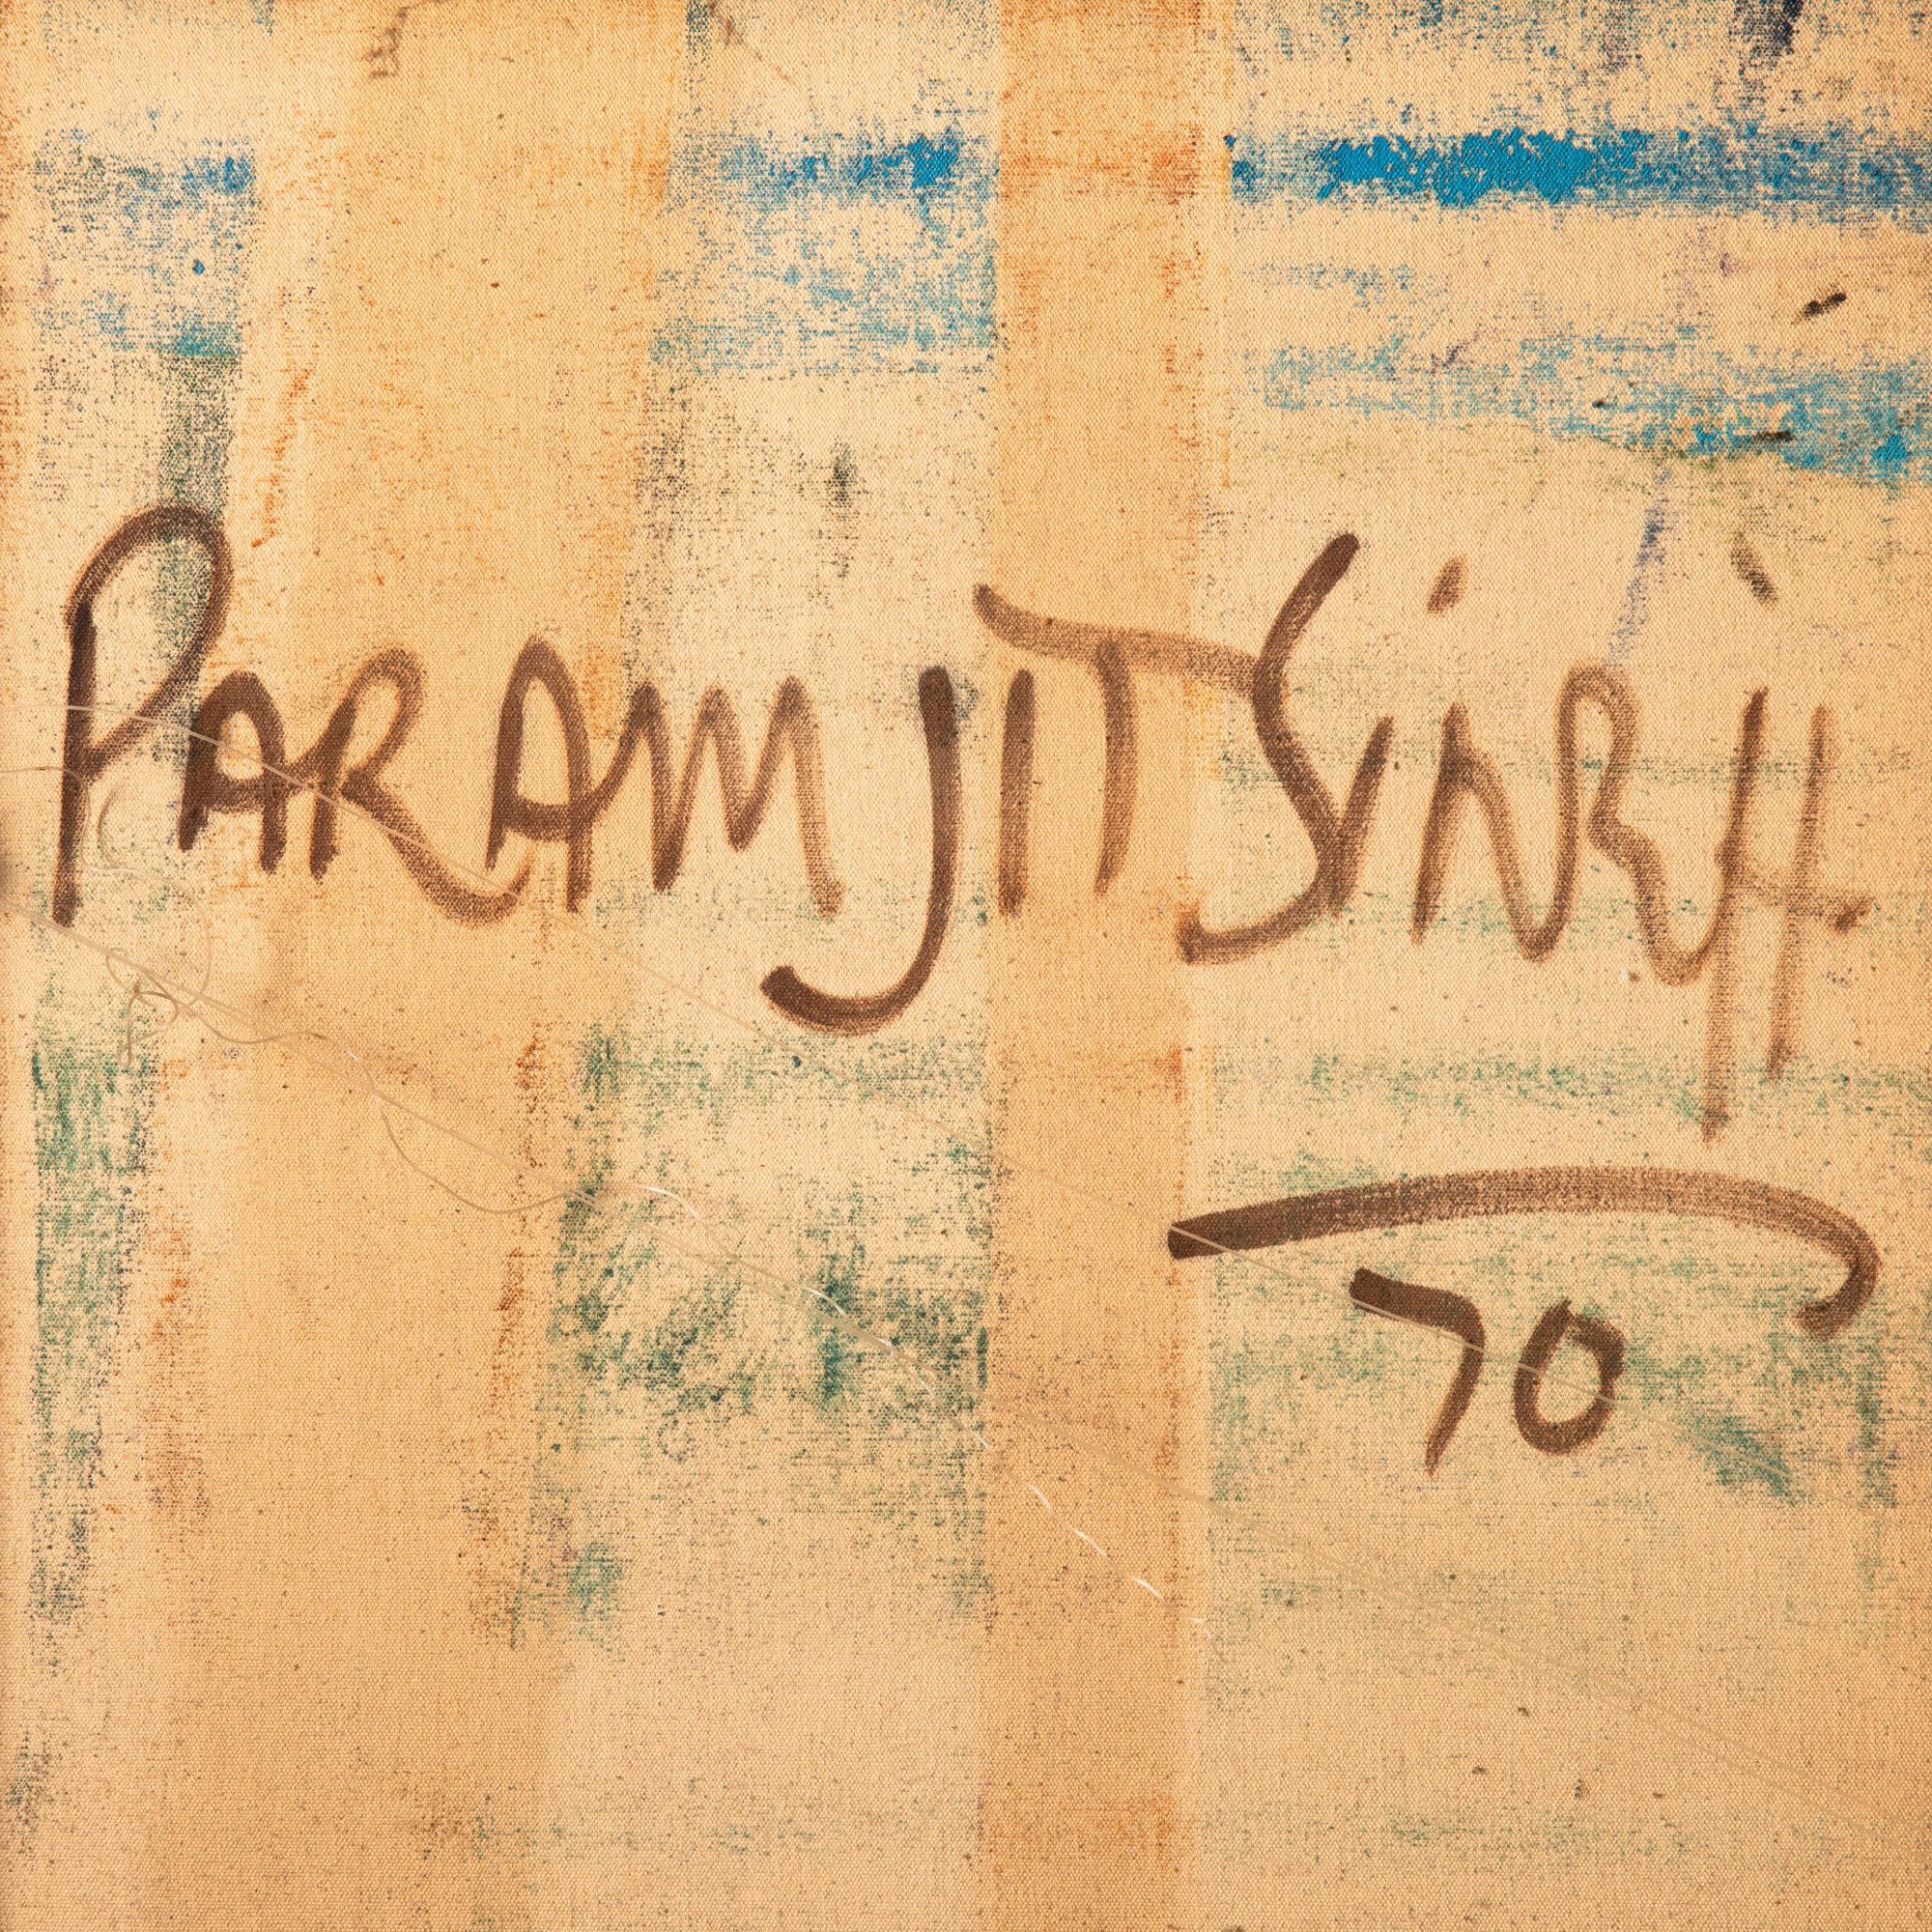 PARAMJIT SiNGH
70